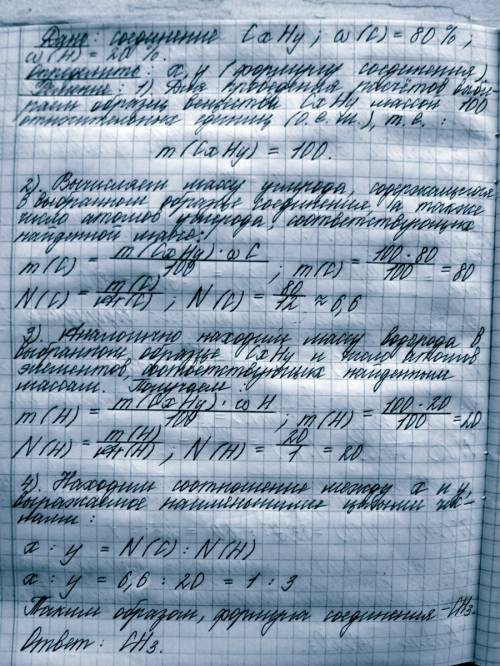 Дано: соединение CxHy; ω(C) = 80%;
ω(H) = 20%.
Определите: x, y (формулу соединения)
Решение: 1). Для проведения расчётов выби-
раем образец вещества CxHy массой 100
относительных единиц (о.е.м.), т.е.:
m(CxHy) = 100.
2). Вычисляем массу углерода, содержащегося
в выбранном образце соединения, а также
число атомов углерода, соответствующих
найденной массе:
m(C) = m(CxHy) · ωC / 100 ; m(C) = 100 · 80 / 100 = 80
N(C) = m(C) / Ar(C) ; N(C) = 80 / 12 ≈ 6,6
3). Аналогично находим массу водорода в
выбранном образце CxHy и число атомов
элементов, соответствующих найденным
массам. Получаем:
m(H) = m(CxHy) · ωH / 100 ; m(H) = 100 · 20 / 100 = 20
N(H) = m(H) / Ar(H) , N(H) = 20 / 1 = 20
4). Находим соотношение между x и y,
выражаемое наименьшими целыми чис-
лами:
x : y = N(C) : N(H)
x : y = 6,6 : 20 = 1 : 3
Таким образом, формула соединения - CH3.
Ответ: CH3.